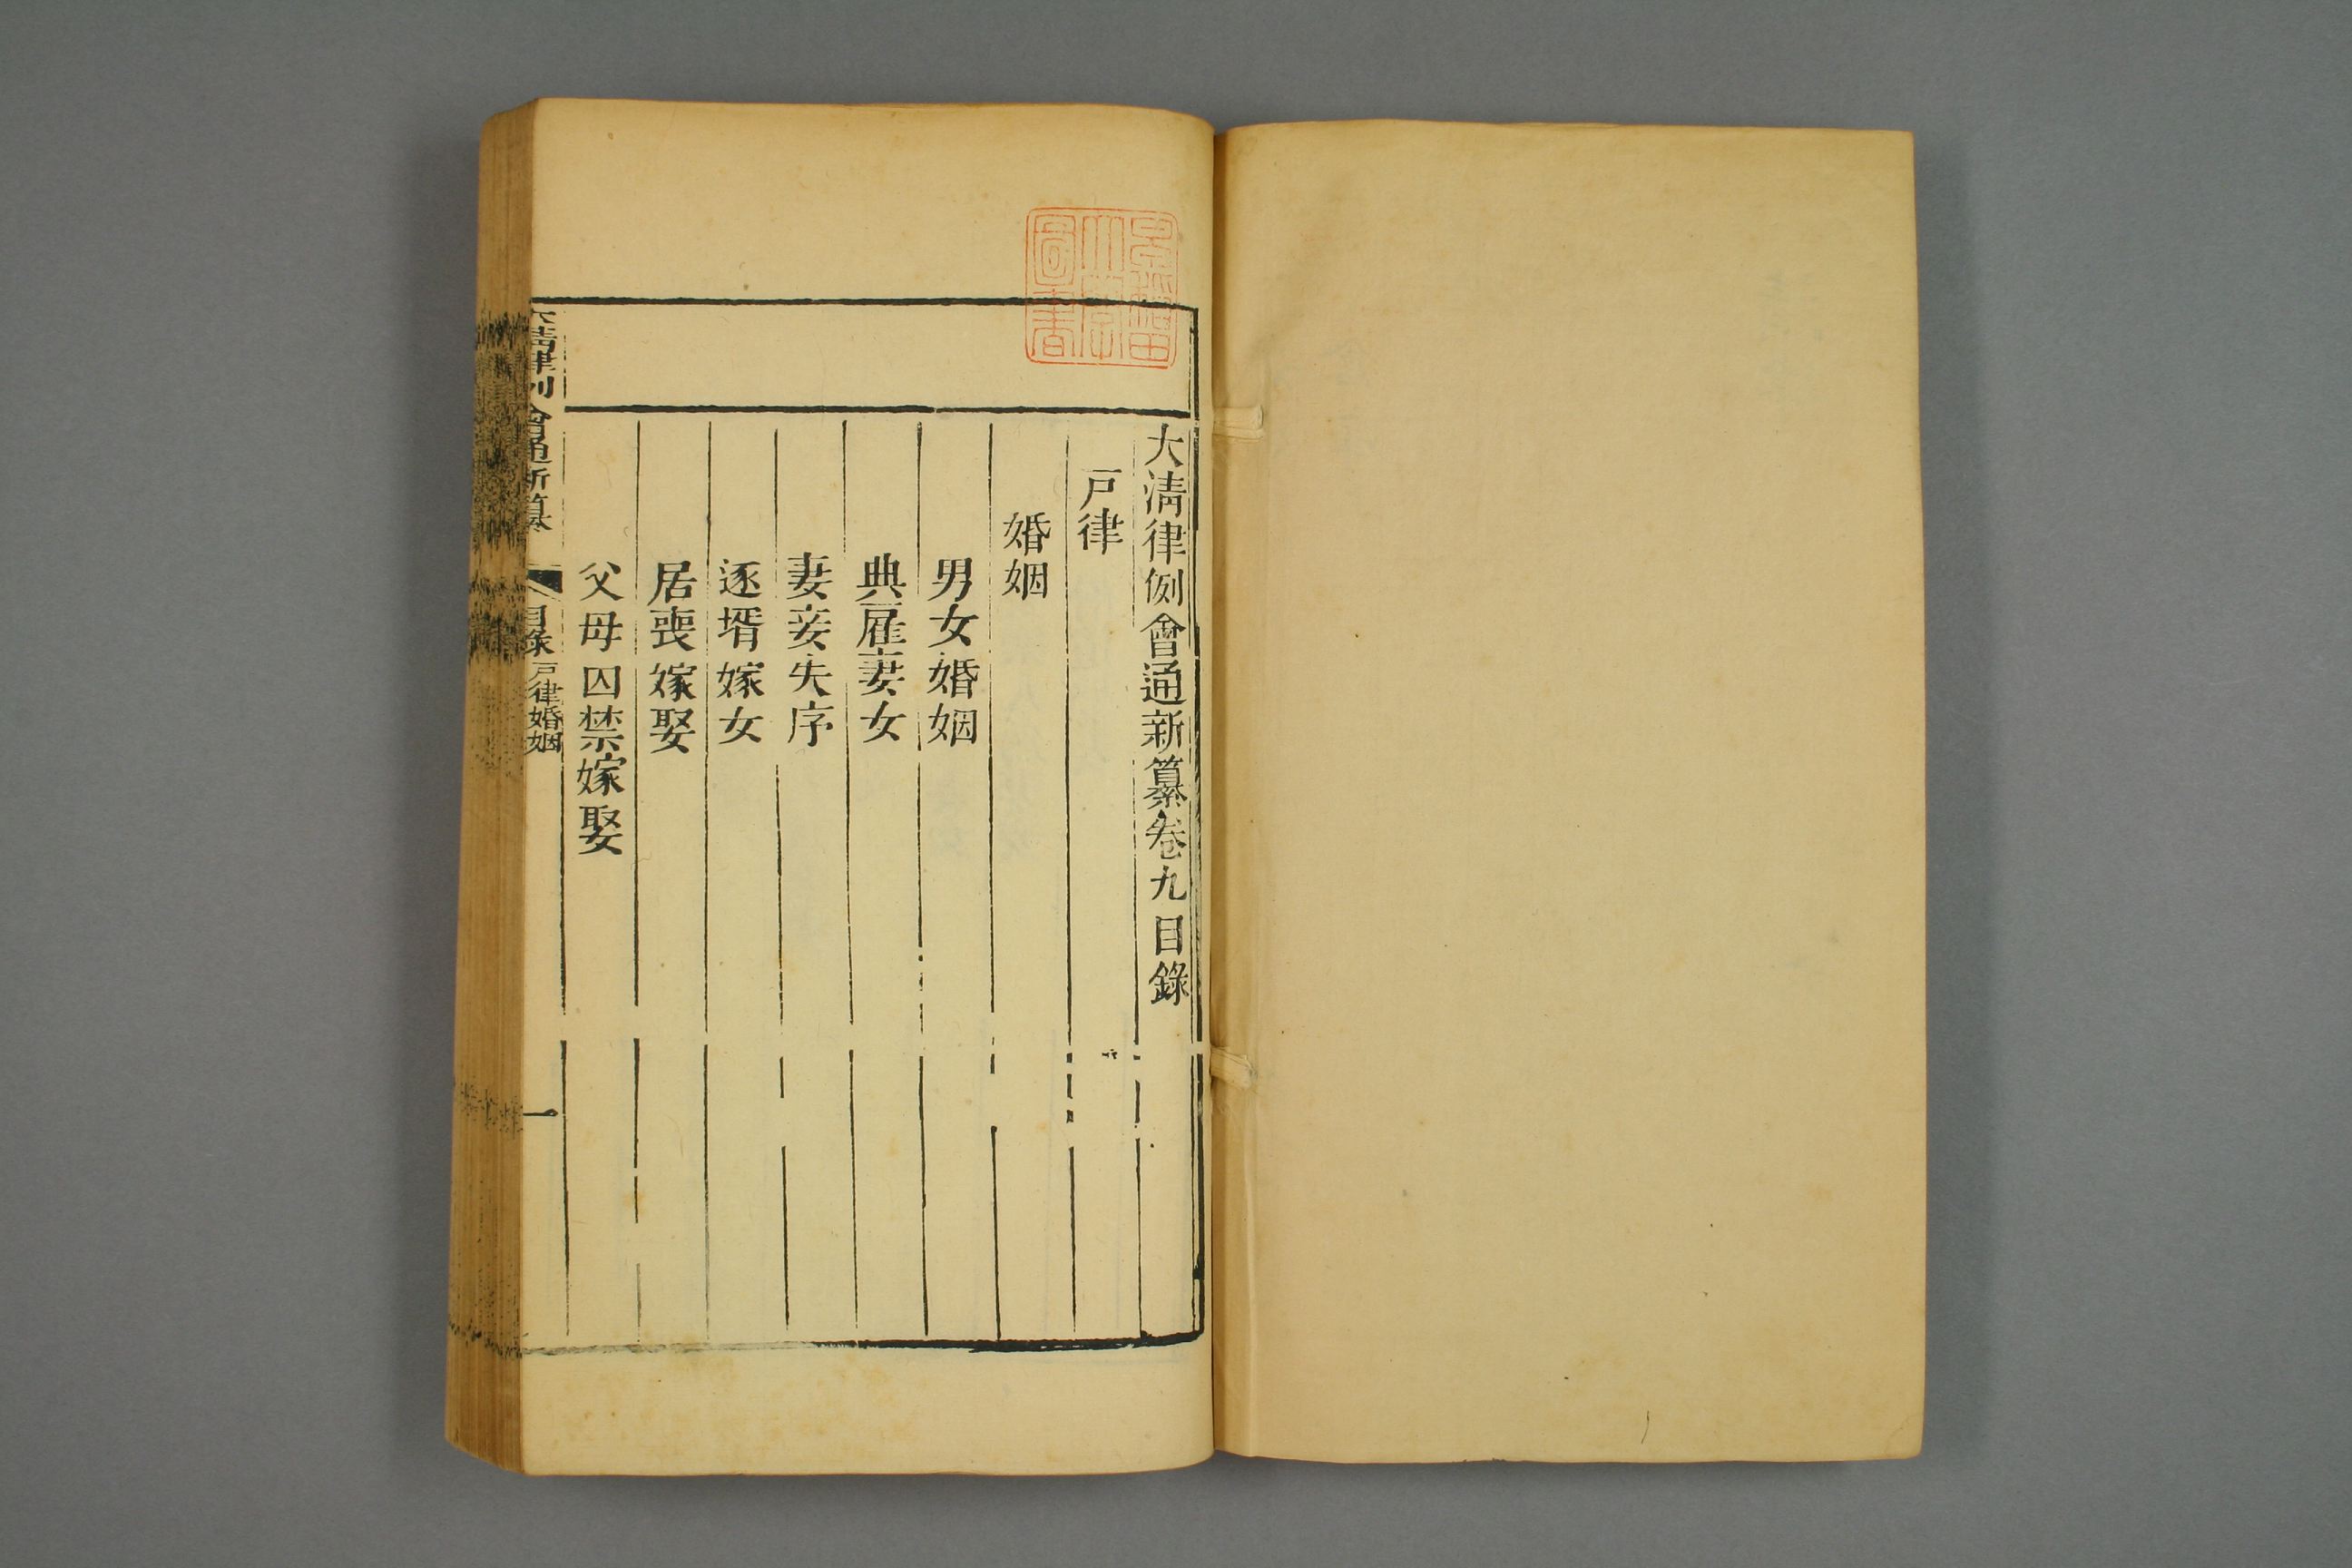 大清律例會通新纂卷九目錄
戶律
婚姻
男女婚姻
典雇妻女
妻妾失序
逐壻嫁女
居喪嫁娶
父母囚禁嫁娶
大清律例會通新纂
目錄
戶律婚姻
一
圖書